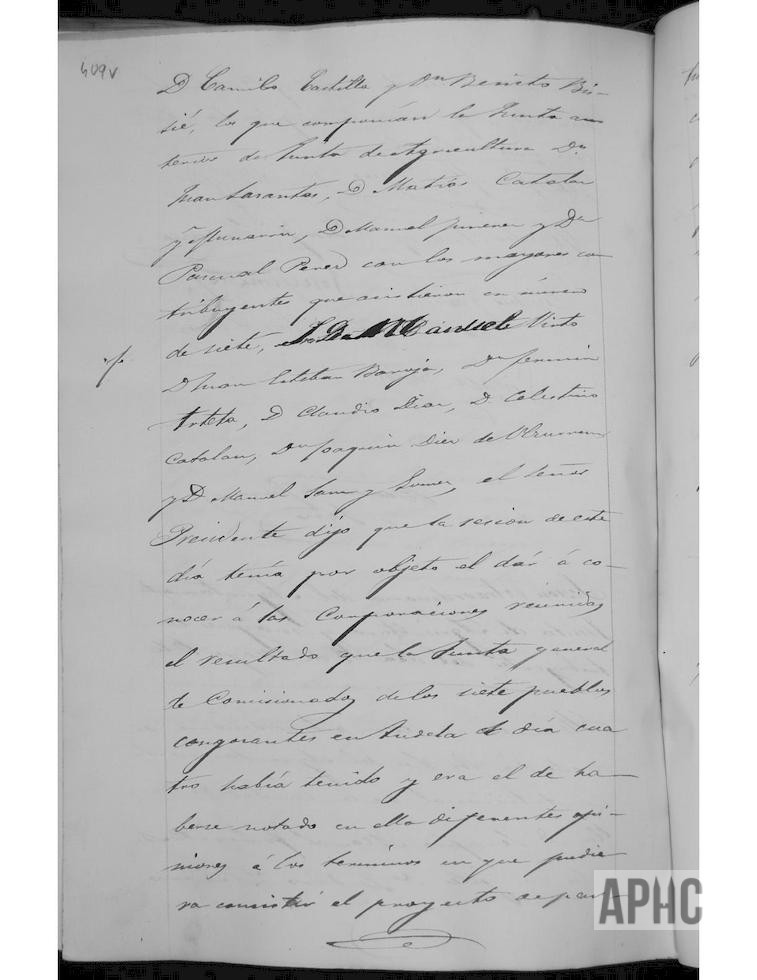 409v
D Camilo Castilla y Dn Benito Bu-
sié, los que componían la Junta an
terior de Junta de Agricultura Dn
Juan Lasantas, D Matías Catalan
y Munarriz, D Manuel Jimenez y Dn
Pascual Perez con los mayores con
tribuyentes que asistieron en número
de siete, Vinto
D Juan Esteban Baroja, Dn Fermin
Arteta, D Claudio Diaz, D Celestino
Catalan, Dn Joaquin Diez de Ulzurrun
y D Manuel Sanz y Gomez, el señor
Presidente dijo que la sesion de este
día tenía por objeto el dár á co-
nocer á las Corporaciones reunidas
el resultado que la Junta general
de Comisionados de los siete pueblos
congozantes en Tudela el día cua
tro había tenido y era el de ha-
berse notado en ella diferentes opi-
niones á los terminos en que pudie
ra consistir el proyecto de part
APHC